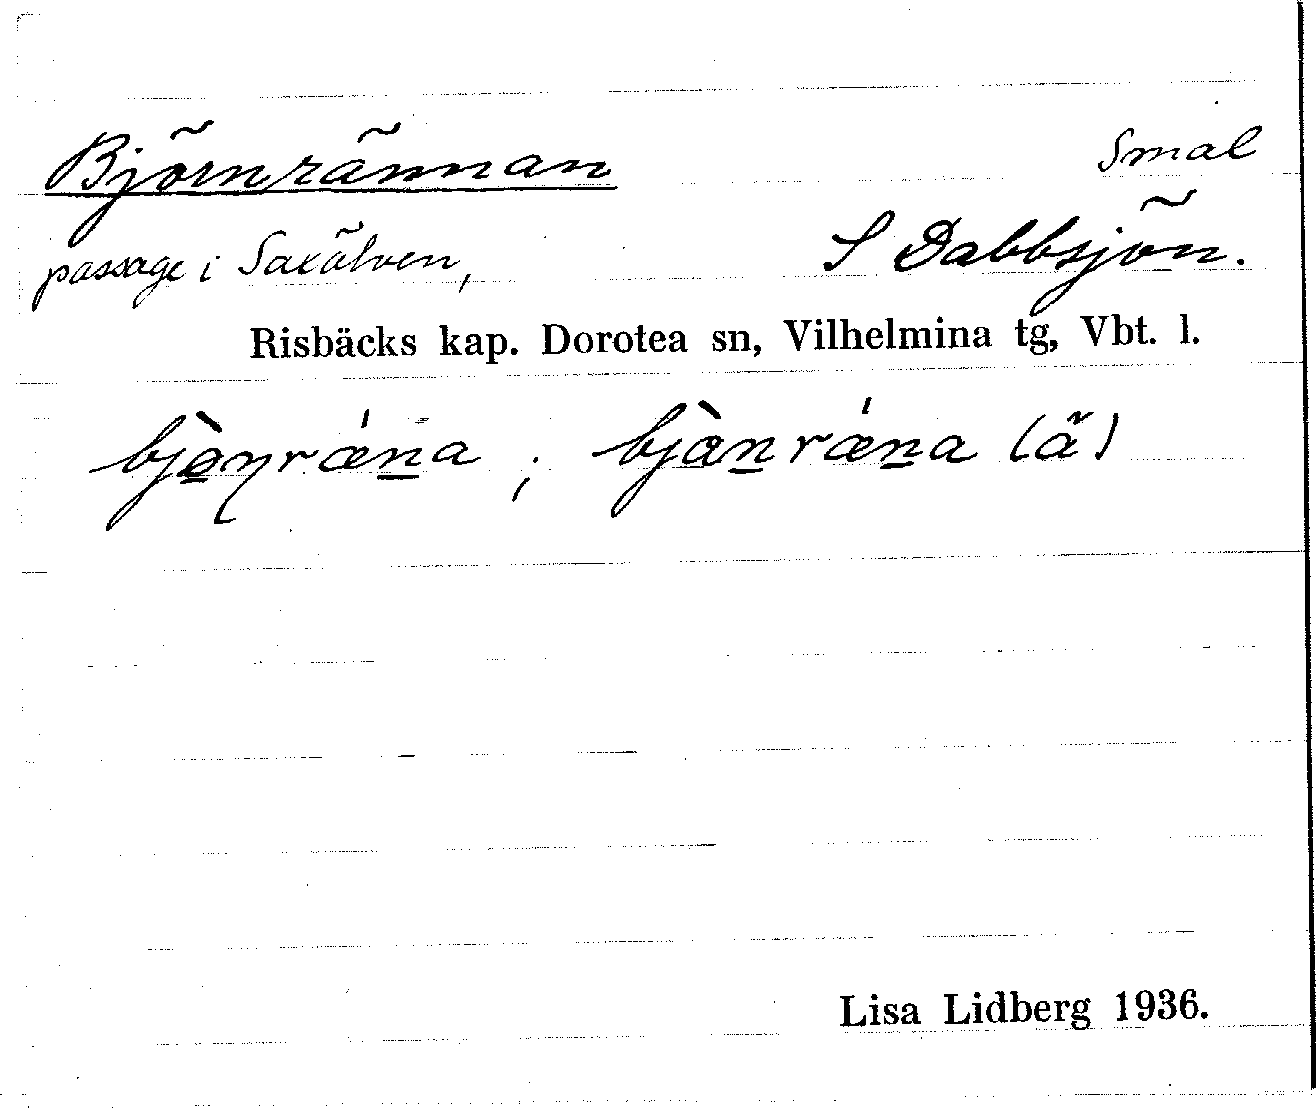 Björnrännan Smal
passage i Saxälven, S Dabbsjön.
Risbäcks kap. Dorotea sn, Vilhelmina tg, Vbt. l.
bjə̀ŋrǽn̲a ; bjæ̀n̲rǽn̲a (ä)
Lisa Lidberg 1936.